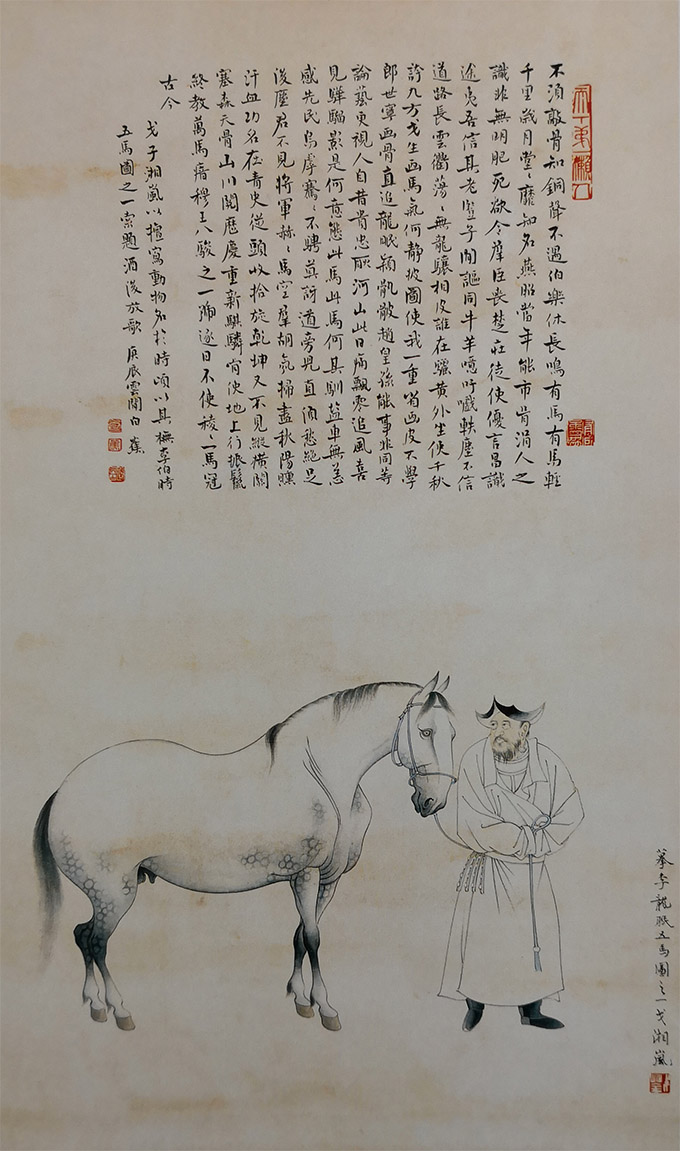 不須敲骨知銅聲不遇伯樂休長鳴有馬有馬輕
千里歲月堂〻靡知名燕昭當年能市骨涓人之
識非無明肥死欲令羣臣喪楚莊徒使優言昌識
途夷吾信其老宣子閒謳同牛羊噫吁嚱軼塵不信
道路長雲衢蕩〻無龍驤相皮誰在驪黃外坐使千秋
誇九方戈生画馬氣何靜披圖使我一重省画皮不學
郎世寧画骨直追龍眠穎骯髒趙皇孫能事非同等
論藝更視人自昔貴忠耿河山此日痛飄零追風喜
見驊騮影是何意態此馬此馬何其馴鹽車無恙
感先民烏虖騫〻不騁莫訝道旁見直須愁絕足
後塵君不見將軍赫〻馬空羣胡氛掃盡秋陽曝
汗血功名在青史從頭收拾旋乾坤又不見縱橫關
塞森天骨山川閱歷慶重新騏驎宵使地上行振鬣
終教萬馬瘖穆王八駿之一歸逐日不使稜〻一馬冠
古今
戈子湘嵐以擅寫動物知於時頃以其橅李伯時
五馬圖之一索題酒後放歌 庚辰雲間白蕉
摹李龍眠五馬圖之一戈湘嵐